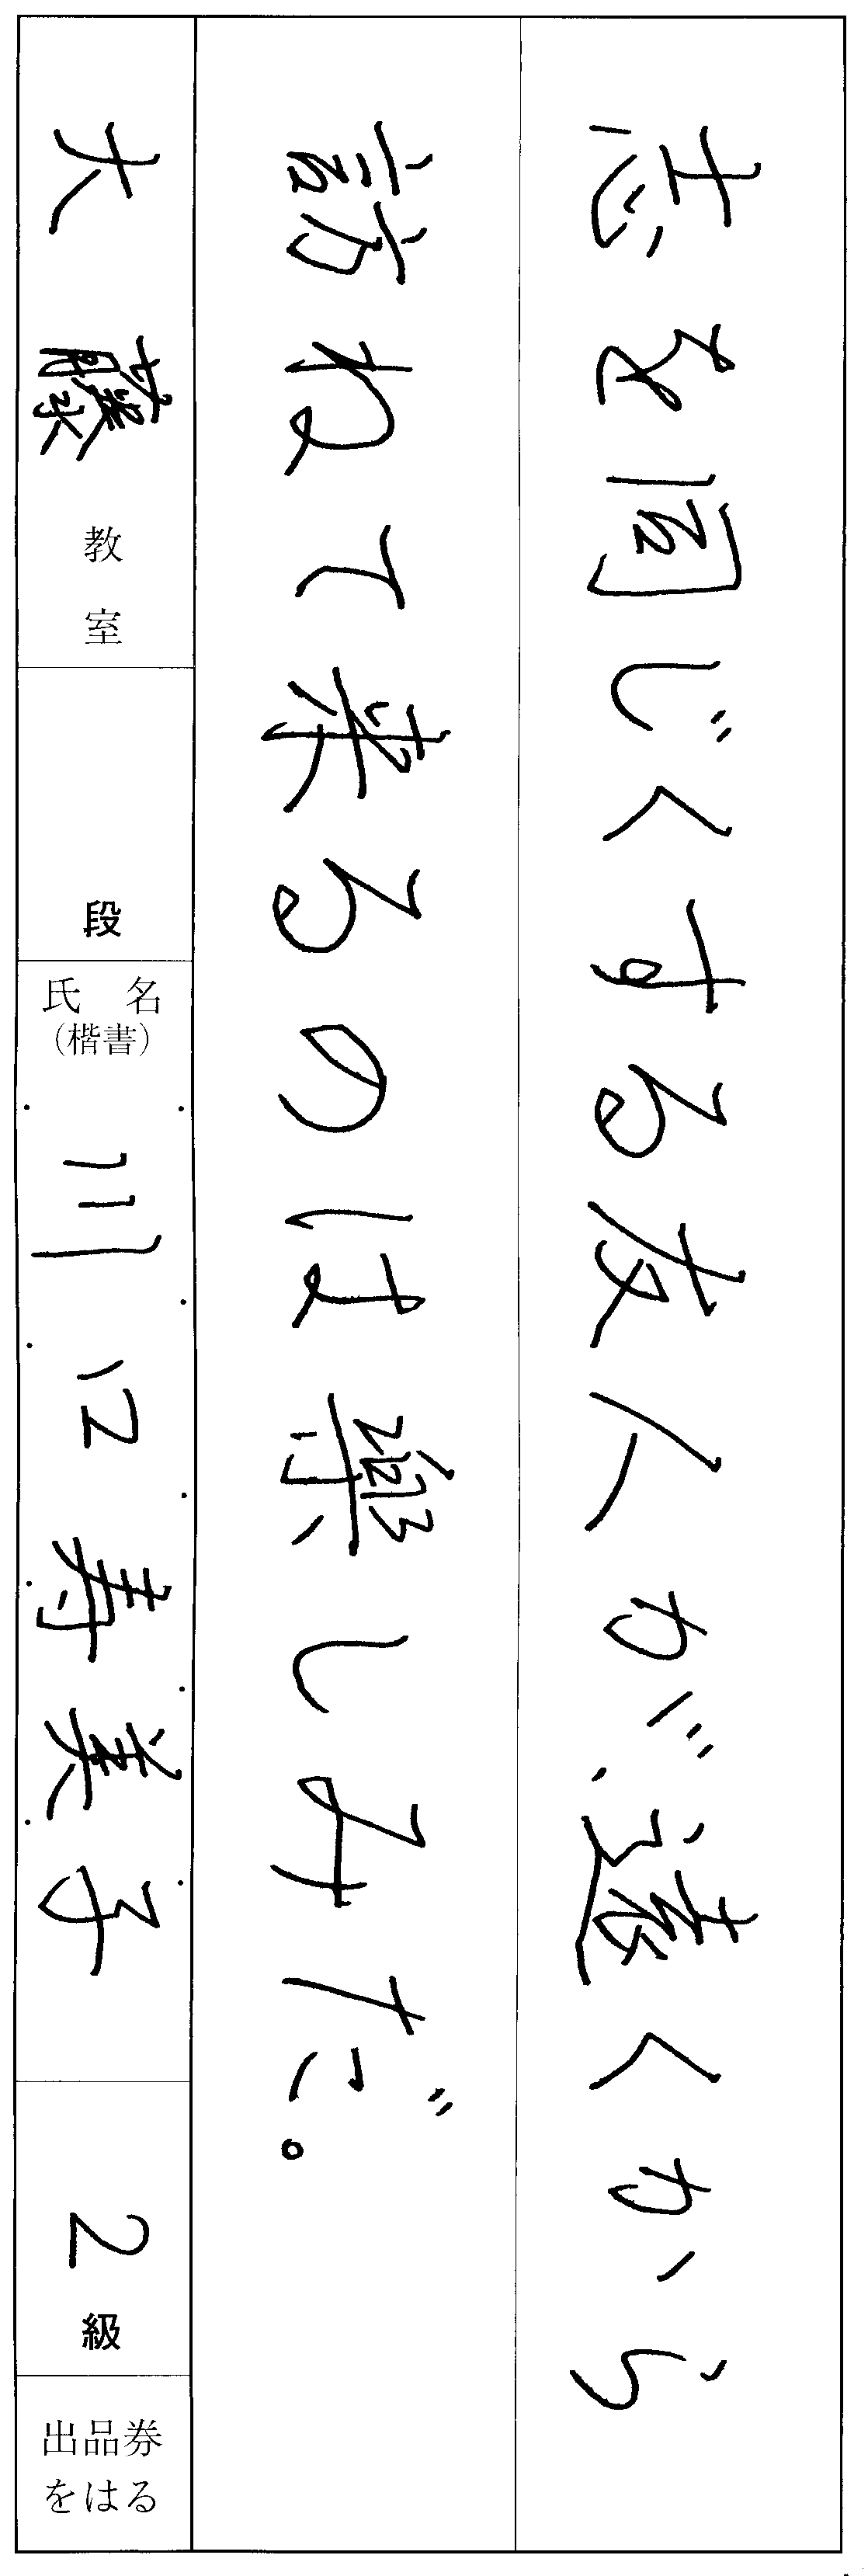 志を同じくする友人が、遠くから
訪ねて来るのは楽しみだ。
大藤教室
段
氏名
(楷書)
川口寿美子
2級
出品券
をはる